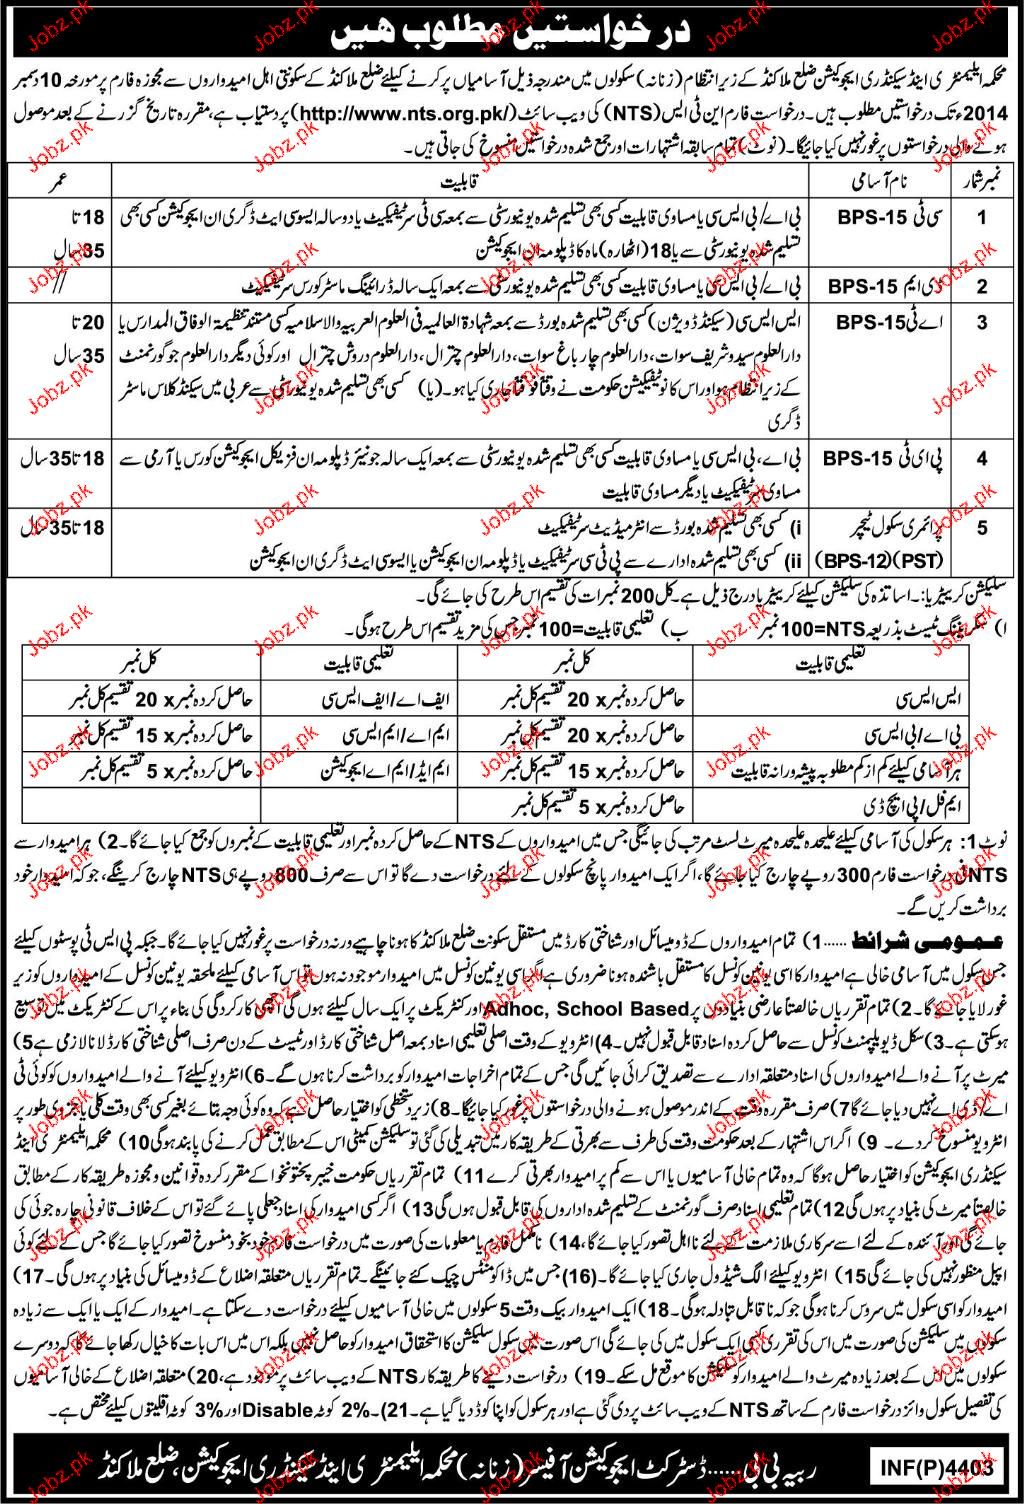 درخواستیں مطلوب ہیں
محکمہ ایلیمنٹری اینڈ سیکنڈری ایجوکیشن ضلع ملاکنڈ کے زیر انتظام (زنانہ) سکولوں میں مندرجہ ذیل آسامیاں پر کرنے کیلئے ضلع ملاکنڈ کے سکونتی اہل امیدواروں سے مجوزہ فارم پر مورخہ 10 دسمبر
2014ء تک درخواستیں مطلوب ہیں۔ درخواست فارم این ٹی ایس (NTS) کی ویب سائٹ (http://www.nts.org.pk/) پر دستیاب ہے، مقررہ تاریخ گزرنے کے بعد موصول
ہونے والی درخواستوں پر غور نہیں کیا جائیگا۔ (نوٹ) تمام سابقہ اشتہارات اور جمع شدہ درخواستیں منسوخ کی جاتی ہیں۔
نمبر شمار نام آسامی قابلیت عمر
1 سی ٹی BPS-15 بی اے/ بی ایس سی یا مساوی قابلیت کسی بھی تسلیم شدہ یونیورسٹی سے بمعہ سی ٹی سرٹیفیکیٹ یا دو سالہ ایسوسی ایٹ ڈگری ان ایجوکیشن کسی بھی 18 تا
تسلیم شدہ یونیورسٹی سے یا 18 (اٹھارہ) ماہ کا ڈپلومہ ان ایجوکیشن 35 سال
2 ڈی ایم BPS-15 بی اے/ بی ایس سی یا مساوی قابلیت کسی بھی تسلیم شدہ یونیورسٹی سے بمعہ ایک سالہ ڈرائینگ ماسٹر کورس سرٹیفکیٹ //
3 اے ٹی BPS-15 ایس ایس سی (سیکنڈ ڈویژن) کسی بھی تسلیم شدہ بورڈ سے بمعہ شہادۃ العالمیہ فی العلوم العربیہ والاسلامیہ کسی مستند تنظیمۃ الوفاق المدارس یا 20 تا
دارالعلوم سیدو شریف سوات، دارالعلوم چار باغ سوات، دارالعلوم چترال، دارالعلوم دروش چترال اور کوئی دیگر دارالعلوم جو گورنمنٹ 35 سال
کے زیر انتظام ہو اور اس کا نوٹیفیکیشن حکومت نے وقتاً فوقتاً جاری کیا ہو۔ (یا) کسی بھی تسلیم شدہ یونیورسٹی سے عربی میں سیکنڈ کلاس ماسٹر
ڈگری
4 پی ای ٹی BPS-15 بی اے، بی ایس سی یا مساوی قابلیت کسی بھی تسلیم شدہ یونیورسٹی سے بمعہ ایک سالہ جونیئر ڈپلومہ ان فزیکل ایجوکیشن کورس یا آرمی سے 18 تا 35 سال
مساوی سرٹیفیکیٹ یا دیگر مساوی قابلیت
5 پرائمری سکول ٹیچر i) کسی بھی تسلیم شدہ بورڈ سے انٹرمیڈیٹ سرٹیفکیٹ 18 تا 35 سال
(PST)(BPS-12) ii) کسی بھی تسلیم شدہ ادارے سے پی ٹی سی سرٹیفکیٹ یا ڈپلومہ ان ایجوکیشن یا ایسوسی ایٹ ڈگری ان ایجوکیشن
سلیکشن کرائیٹریا:۔ اساتذہ کی سلیکشن کیلئے کرائیٹریا درج ذیل ہے۔ کل 200 نمبرات کی تقسیم اس طرح کی جائے گی۔
ا) سکریننگ ٹیسٹ بذریعہ NTS=100 نمبر ب) تعلیمی قابلیت=100 نمبر جس کی مزید تقسیم اس طرح ہو گی۔
تعلیمی قابلیت کل نمبر تعلیمی قابلیت کل نمبر
ایس ایس سی حاصل کردہ نمبر x 20 تقسیم کل نمبر ایف اے/ ایف ایس سی حاصل کردہ نمبر x 20 تقسیم کل نمبر
بی اے/ بی ایس سی حاصل کردہ نمبر x 20 تقسیم کل نمبر ایم اے/ ایم ایس سی حاصل کردہ نمبر x 15 تقسیم کل نمبر
ہر آسامی کیلئے کم از کم مطلوبہ پیشہ ورانہ قابلیت حاصل کردہ نمبر x 15 تقسیم کل نمبر ایم ایڈ/ ایم اے ایجوکیشن حاصل کردہ نمبر x 5 تقسیم کل نمبر
ایم فل/ پی ایچ ڈی حاصل کردہ نمبر x 5 تقسیم کل نمبر
نوٹ 1: ہر سکول کی آسامی کیلئے علیحدہ علیحدہ میرٹ لسٹ مرتب کی جائیگی جس میں امیدواروں کے NTS کے حاصل کردہ نمبر اور تعلیمی قابلیت کے نمبروں کو جمع کیا جائے گا۔ 2) ہر امیدوار سے
NTS فی درخواست فارم 300 روپے چارج کیا جائے گا، اگر ایک امیدوار پانچ سکولوں کے لئے درخواست دے گا تو اس سے صرف 800 روپے ہی NTS چارج کرینگے، جو کہ امیدوار خود
برداشت کریں گے۔
عمومی شرائط ......1) تمام امیدواروں کے ڈومیسائل اور شناختی کارڈ میں مستقل سکونت ضلع ملاکنڈ کا ہونا چاہیے ورنہ درخواست پر غور نہیں کیا جائے گا۔ جبکہ پی ایس ٹی پوسٹوں کیلئے
جس سکول میں آسامی خالی ہے امیدوار کا اسی یونین کونسل کا مستقل باشندہ ہونا ضروری ہے اگر اسی یونین کونسل میں امیدوار موجود نہ ہوں تو اس آسامی کیلئے ملحقہ یونین کونسل کے امیدواروں کو زیر
غور لایا جائے گا۔ 2) تمام تقرریاں خالصتاً عارضی بنیادوں پر Adhoc, School Based اور کنٹریکٹ پر ایک سال کیلئے ہوں گی اچھی کارکردگی کی بناء پر اس کے کنٹریکٹ میں توسیع
ہو سکتی ہے۔ 3) سکل ڈیویلپمنٹ کونسل سے حاصل کردہ اسناد قابل قبول نہیں۔ 4) انٹرویو کے وقت اصلی تعلیمی اسناد بمعہ اصل شناختی کارڈ اور ٹیسٹ کے دن صرف اصلی شناختی کارڈ لانا لازمی ہے 5)
میرٹ پر آنے والے امیدواروں کی اسناد متعلقہ ادارے سے تصدیق کرائی جائیں گی جس کے تمام اخراجات امیدوار کو برداشت کرنا ہوں گے۔ 6) انٹرویو کیلئے آنے والے امیدواروں کو کوئی ٹی
اے ڈی اے نہیں دیا جائے گا 7) صرف مقررہ وقت کے اندر موصول ہونے والی درخواستوں پر غور کیا جائیگا۔ 8) زیر دستخطی کو اختیار حاصل ہے کہ وہ کوئی وجہ بتائے بغیر کسی بھی وقت کلی یا جزوی طور پر
انٹرویو منسوخ کر دے۔ 9) اگر اس اشتہار کے بعد حکومت وقت کی طرف سے بھرتی کے طریقہ کار میں تبدیلی کی گئی تو سلیکشن کمیٹی اس کے مطابق عمل کرنے کی پابند ہوگی 10) محکمہ ایلیمنٹری اینڈ
سیکنڈری ایجوکیشن کو اختیار حاصل ہوگا کہ وہ تمام خالی آسامیوں یا اس سے کم پر امیدوار بھرتی کرے 11) تمام تقرریاں حکومت خیبر پختونخوا کے مقرر کردہ قوانین و مجوزہ طریقہ کار کے مطابق
خالصتاً میرٹ کی بنیاد پر ہوں گی 12) تمام تعلیمی اسناد صرف گورنمنٹ کے تسلیم شدہ اداروں کی قابل قبول ہوں گی 13) اگر کسی امیدوار کی اسناد جعلی پائے گئے تو اس کے خلاف قانونی چارہ جوئی کی
جائے گی اور آئندہ کے لئے اسے سرکاری ملازمت کے لئے نااہل تصور کیا جائے گا، 14) نامکمل فارم یا معلومات کی صورت میں درخواست فارم خود بخود منسوخ تصور کیا جائے گا جس کے لئے کوئی
اپیل منظور نہیں کی جائے گی 15) انٹرویو کیلئے الگ شیڈول جاری کیا جائے گا۔ 16) جس میں ڈاکومنٹس چیک کئے جائینگے۔ تمام تقرریاں متعلقہ اضلاع کے ڈومیسائل کی بنیاد پر ہوں گی۔ 17)
امیدوار کو اسی سکول میں سروس کرنا ہوگی جو کہ نا قابل تبادلہ ہوگی۔ 18) ایک امیدوار بیک وقت 5 سکولوں میں خالی آسامیوں کیلئے درخواست دے سکتا ہے۔ امیدوار کے ایک یا ایک سے زیادہ
سکولوں میں سلیکشن کی صورت میں اس کی تقرری کسی ایک سکول میں کی جائے گی اس صورت میں سکول سلیکشن کا استحقاق امیدوار کو حاصل نہیں بلکہ اس میں اس بات کا خیال رکھا جائے گا کہ دوسرے
سکولوں میں اس کے بعد زیادہ میرٹ والے امیدوار کو سلیکشن کا موقع مل سکے۔ 19) درخواست دینے کا طریقہ کار NTS کے ویب سائٹ پر موجود ہے، 20) متعلقہ اضلاع کے خالی آسامیوں
کی تفصیل سکول وائز درخواست فارم کے ساتھ NTS کے ویب سائٹ پر دی گئی ہے اور ہر سکول کو اپنا کوڈ دیا گیا ہے۔ 21)۔ 2% کوٹہ Disable اور 3% کوٹہ اقلیتوں کیلئے مختص ہے۔
بی بی ...... ڈسٹرکٹ ایجوکیشن آفیسر (زنانہ) محکمہ ایلیمنٹری اینڈ سیکنڈری ایجوکیشن، ضلع ملاکنڈ
INF(P)4403
Jobz.pk